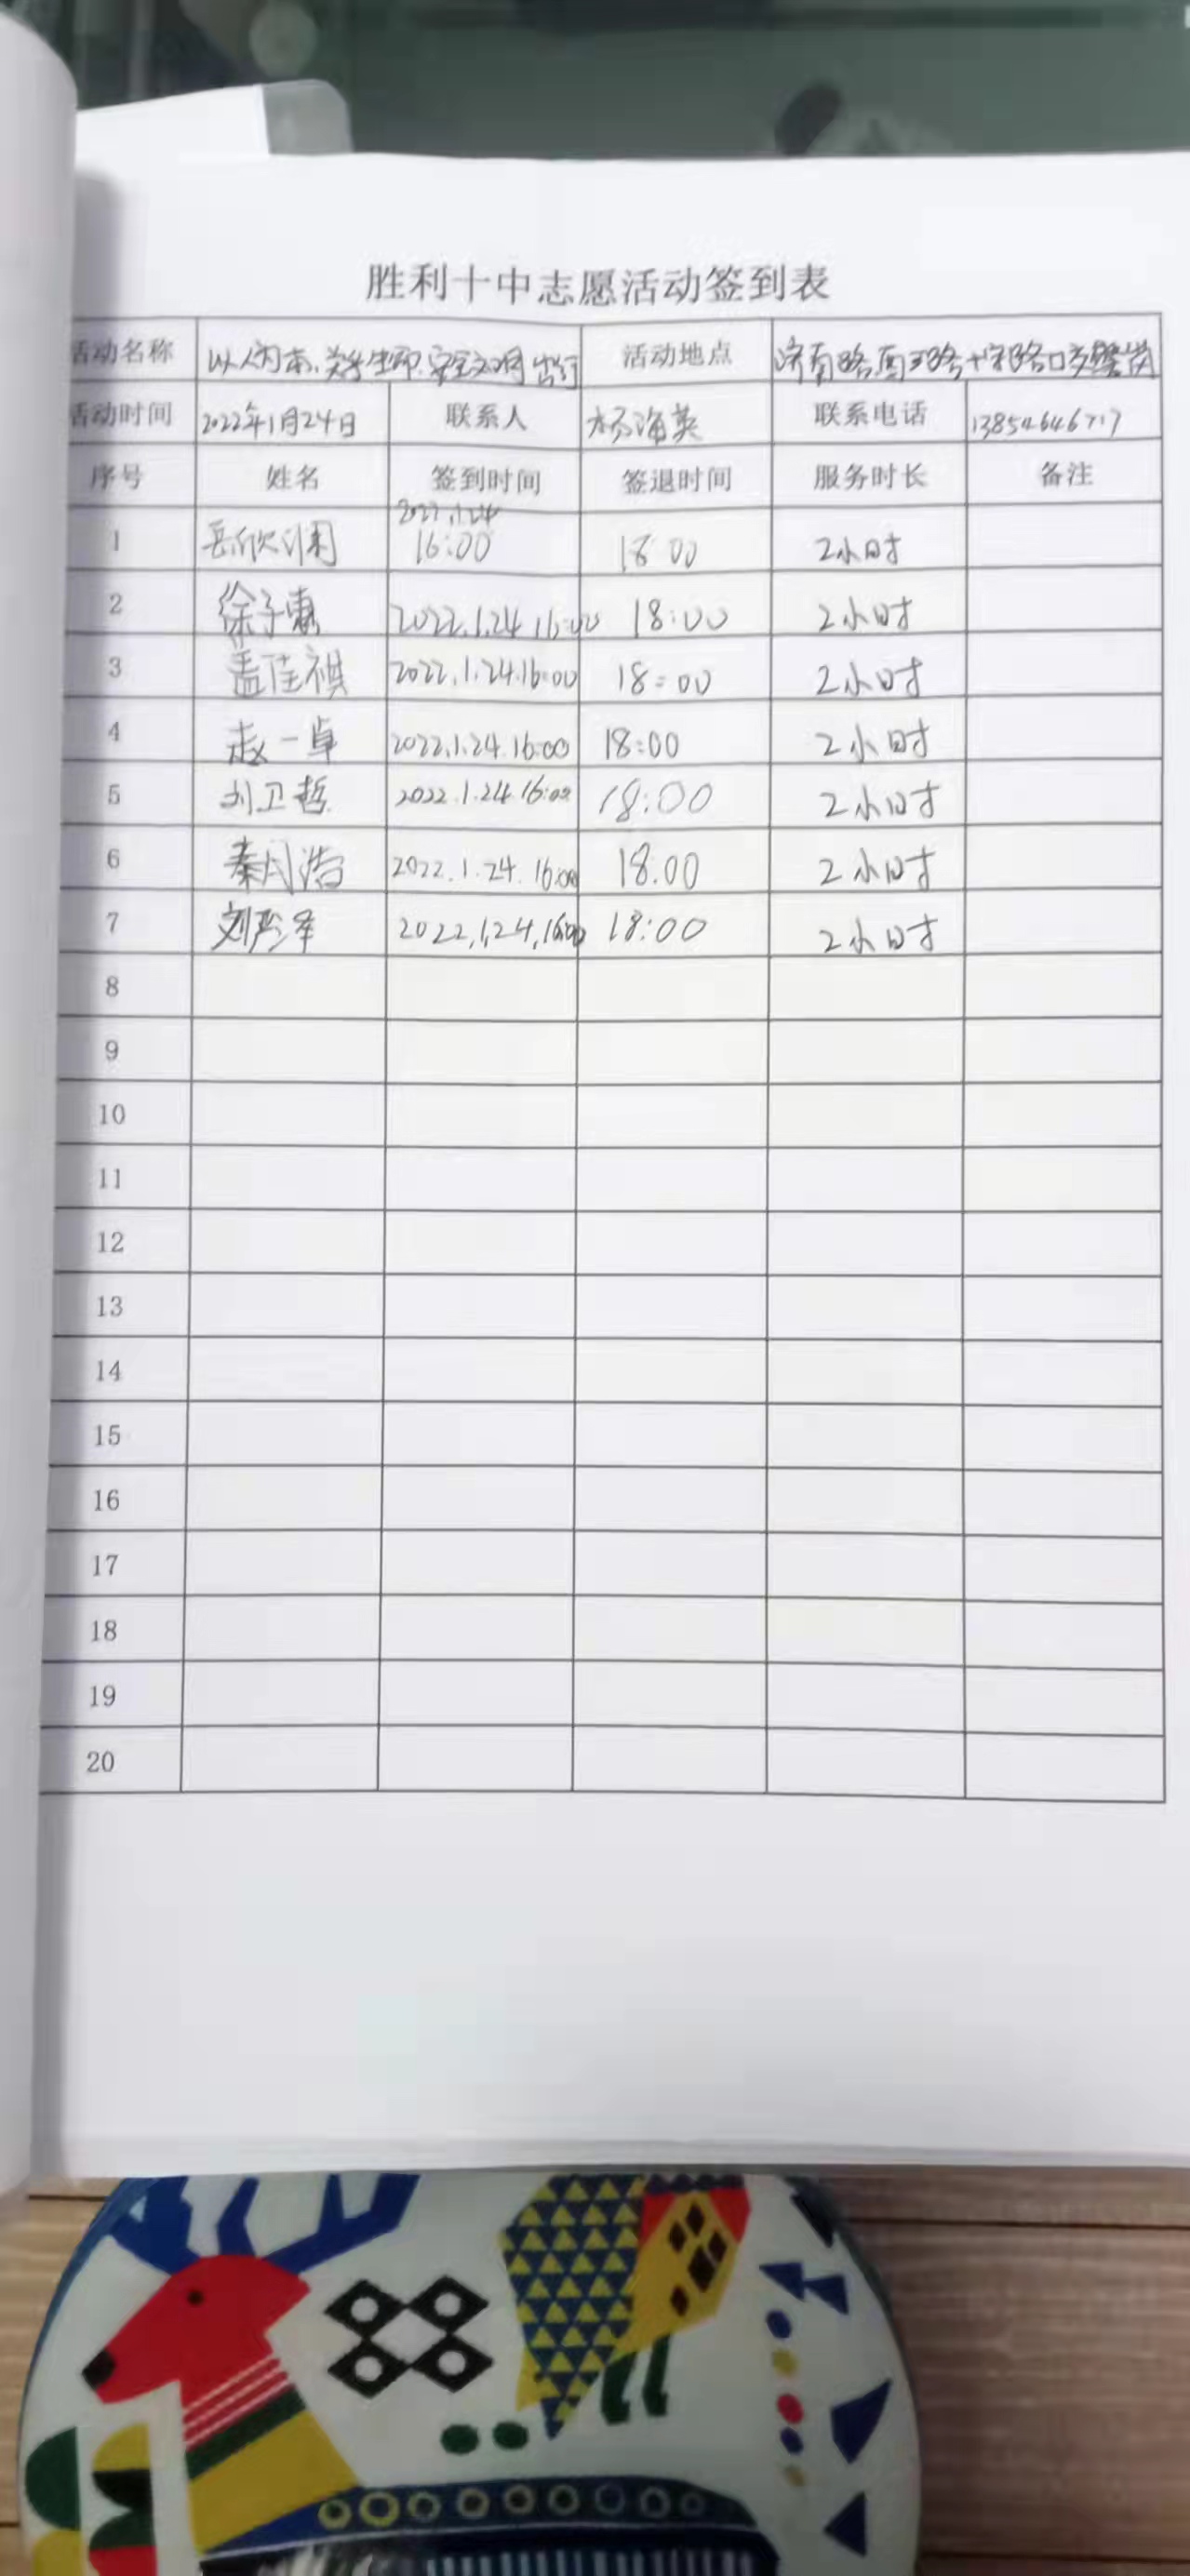 胜利十中志愿活动签到表
活动名称 以人为本,关乎生命,安全文明出行 活动地点 济南路西三路十字路口交警岗
活动时间 2022年1月24日 联系人 杨海英 联系电话 13854646717
序号 姓名 签到时间 签退时间 服务时长 备注
1 岳欣 2022.1.24 16:00 18 00 2小时
2 徐子惠 2022.1.24 16:00 18:00 2小时
3 盖佳祺 2022.1.24.16:00 18:00 2小时
4 赵一卓 2022.1.24.16:00 18:00 2小时
5 刘卫哲 2022.1.24.16:00 18:00 2小时
6 秦月浩 2022.1.24.16:00 18.00 2小时
7 刘彦泽 2022,1,24,16:00 18:00 2小时
8
9
10
11
12
13
14
15
16
17
18
19
20